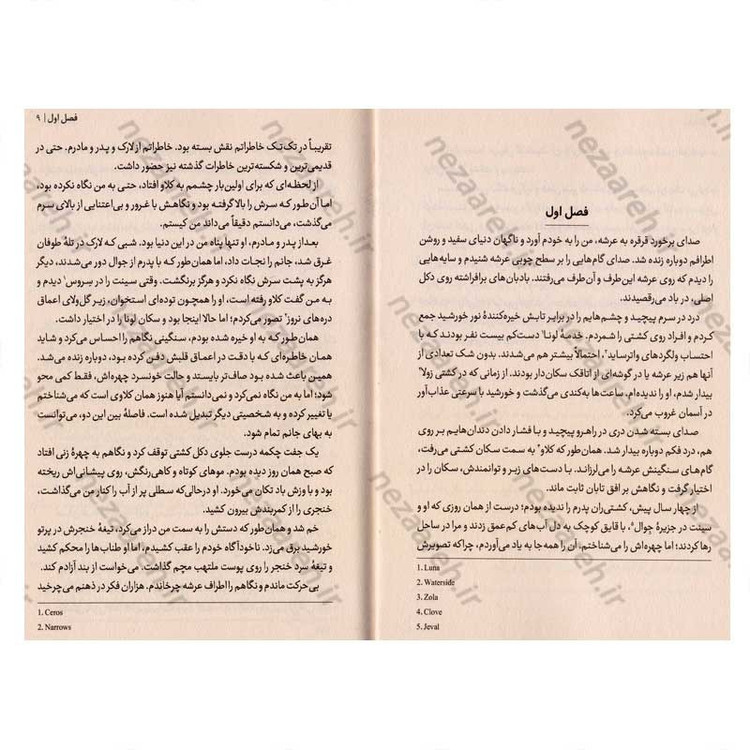 فصل اول
صدای برخورد قرقره به عرشه، من را به خودم آورد و ناگهان دنیای سفید و روشن
اطرافم دوباره زنده شد. صدای گام‌هایی را بر سطح چوبی عرشه شنیدم و سایه‌هایی
را دیدم که روی عرشه این‌طرف و آن‌طرف می‌رفتند. بادبان‌های برافراشته روی دکل
اصلی، در باد می‌رقصیدند.
درد در سرم پیچید و چشم‌هایم را در برابر تابش خیره‌کنندهٔ نور خورشید جمع
کردم و افراد روی کشتی را شمردم. خدمهٔ لونا¹ دست‌کم بیست نفر بودند که با
احتساب ولگردهای واترساید²، احتمالاً بیشتر هم می‌شدند. بدون شک تعدادی از
آنها هم زیر عرشه یا در گوشه‌ای از اتاقک سکان‌دار بودند. از زمانی که در کشتی زولا³
بیدار شدم، او را ندیده‌ام. ساعت‌ها به‌کندی می‌گذشت و خورشید با سرعتی عذاب‌آور
در آسمان غروب می‌کرد.
صدای بسته شدن دری در راهرو پیچید و با فشار دادن دندان‌هایم بر روی
هم، درد فکم دوباره بیدار شد. همان‌طور که کلاو⁴ به سمت سکان کشتی می‌رفت،
گام‌های سنگینش عرشه را می‌لرزاند. با دست‌های زبر و توانمندش، سکان را در
اختیار گرفت و نگاهش بر افق تابان ثابت ماند.
از چهار سال پیش، کشتی‌ران پدرم را ندیده بودم؛ درست از همان روزی که او و
سینت در جزیرهٔ جِوال⁵، با قایق کوچک به دل آب‌های کم‌عمق زدند و مرا در ساحل
رها کردند؛ اما چهره‌اش را می‌شناختم، آن را همه‌جا به یاد می‌آوردم، چراکه تصویرش
1. Luna
2. Waterside
3. Zola
4. Clove
5. Jeval
فصل اول | ۹
تقریباً در تک‌تک خاطراتم نقش بسته بود. خاطراتم از لارک و پدر و مادرم. حتی در
قدیمی‌ترین و شکسته‌ترین خاطرات گذشته نیز حضور داشت.
از لحظه‌ای که برای اولین‌بار چشمم به کلاو افتاد، حتی به من نگاه نکرده بود،
اما آن‌طور که سرش را بالا گرفته بود و نگاهش با غرور و بی‌اعتنایی از بالای سرم
می‌گذشت، می‌دانستم دقیقاً می‌داند من کیستم.
بعد از پدر و مادرم، او تنها پناه من در این دنیا بود. شبی که لارک در تلهٔ طوفان
غرق شد، جانم را نجات داد، اما همان‌طور که با پدرم از جوال دور می‌شدند، دیگر
هرگز به پشت سرش نگاه نکرد و هرگز برنگشت. وقتی سینت را در سِروس¹ دیدم و
به من گفت کلاو رفته است، او را همچون توده‌ای استخوان، زیر گل‌ولای اعماق
دره‌های نروز² تصور می‌کردم؛ اما حالا اینجا بود و سکان لونا را در اختیار داشت.
همان‌طور که به او خیره شده بودم، سنگینی نگاهم را احساس می‌کرد و شاید
همان خاطره‌ای که با دقت در اعماق قلبش دفن کرده بود، دوباره زنده می‌شد.
همین باعث شده بود صاف‌تر بایستد و حالت خونسرد چهره‌اش، فقط کمی محو
شود؛ اما به من نگاه نمی‌کرد و نمی‌دانستم آیا هنوز همان کلاوی است که می‌شناختم
یا تغییر کرده و به شخصیتی دیگر تبدیل شده است. فاصلهٔ بین این دو، می‌توانست
به بهای جانم تمام شود.
یک جفت چکمه درست جلوی دکل کشتی توقف کرد و نگاهم به چهرهٔ زنی افتاد
که صبح همان روز دیده بودم. موهای کوتاه و کاهی‌رنگش، روی پیشانی‌اش ریخته
بود و با وزش باد تکان می‌خورد. او درحالی‌که سطلی پر از آب را کنار من می‌گذاشت،
خنجری را از کمربندش بیرون کشید.
خم شد و همان‌طور که دستش را به سمت من دراز می‌کرد، تیغهٔ خنجرش در پرتو
خورشید برق می‌زد. ناخودآگاه خودم را عقب کشیدم، اما او طناب‌ها را محکم کشید
و تیغهٔ سرد خنجر را روی پوست ملتهب مچم گذاشت. می‌خواست از بند آزادم کند.
بی‌حرکت ماندم و نگاهم را اطراف عرشه چرخاندم. هزاران فکر در ذهنم می‌چرخید
1. Ceros
2. Narrows
nezaareh.ir